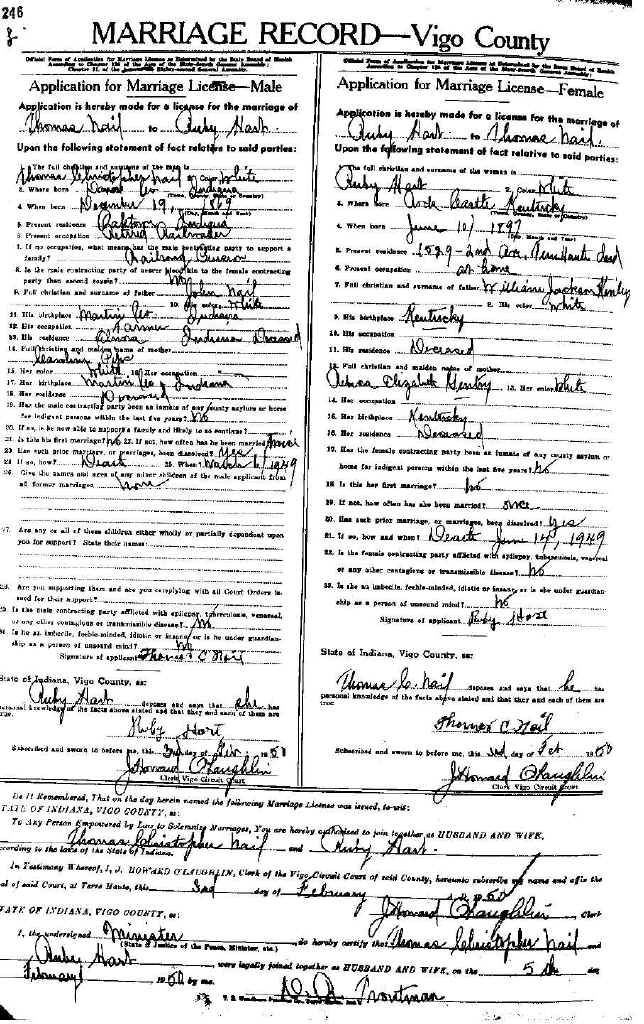 246
MARRIAGE RECORD—Vigo County
Application for Marriage License—Male
Application is hereby made for a license for the marriage of
Thomas Nail to Ruby Hart
Upon the following statement of fact relative to said parties:
1. The full christian and surname of the man is
Thomas Christopher Nail 2. Color White
3. Where born Indiana
4. When born December 19, 1869
5. Present residence Indiana
6. Present occupation
7. If no occupation, what means has the male contracting party to support a
family? Railroad Pension
8. Is the male contracting party of nearer blood kin to the female contracting
party than second cousin? No
9. Full christian and surname of father John Nail
10. His color White
11. His birthplace Martin Co Indiana
12. His occupation Farmer
13. His residence Elnora Indiana Deceased
14. Full christian and maiden name of mother
15. Her color White 16. Her occupation
17. Her birthplace Martin Co, Indiana
18. Her residence Deceased
19. Has the male contracting party been an inmate of any county asylum or home
for indigent persons within the last five years? No
20. If so, is he now able to support a family and likely to so continue?
21. Is this his first marriage? No 22. If not, how often has he been married? Twice
23. Has such prior marriage, or marriages, been dissolved? Yes
24. If so, how? Death 25. When? 1949
26. Give the names and ages of any minor children of the male applicant from
all former marriages None
27. Are any or all of these children either wholly or partially dependent upon
you for support? State their names:
28. Are you supporting them and are you complying with all Court Orders in
said for their support?
29. Is the male contracting party afflicted with epilepsy, tuberculosis, venereal,
or any other contagious or transmissible disease? No
30. Is he an imbecile, feeble-minded, idiotic or insane, or is he under guardian-
ship as a person of unsound mind? No
Signature of applicant Thomas C Nail
State of Indiana, Vigo County, ss:
Ruby Hart deposes and says that she has
personal knowledge of the facts above stated and that they and each of them are
true.
Ruby Hart
Subscribed and sworn to before me, this 3rd day of Feb. 1950
J Howard O'Laughlin
Clerk Vigo Circuit Court
Application for Marriage License—Female
Application is hereby made for a license for the marriage of
Ruby Hart to Thomas Nail
Upon the following statement of fact relative to said parties:
1. The full christian and surname of the woman is
Ruby Hart 2. Color White
3. Where born Rock Castle Kentucky
4. When born June 10, 1897
5. Present residence 1829-2nd Ave, Terre Haute Ind
6. Present occupation at home
7. Full christian and surname of father William Jackson
8. His color White
9. His birthplace Kentucky
10. His occupation
11. His residence Deceased
12. Full christian and maiden name of mother
Elizabeth Gentry 13. Her color White
14. Her occupation
15. Her birthplace Kentucky
16. Her residence Deceased
17. Has the female contracting party been an inmate of any county asylum or
home for indigent persons within the last five years? No
18. Is this her first marriage? No
19. If not, how often has she been married? once
20. Has such prior marriage, or marriages, been dissolved? Yes
21. If so, how and when? Death June 1949
22. Is the female contracting party afflicted with epilepsy, tuberculosis, venereal
or any other contagious or transmissible disease? No
23. Is she an imbecile, feeble-minded, idiotic or insane, or is she under guardian-
ship as a person of unsound mind? No
Signature of applicant Ruby Hart
State of Indiana, Vigo County, ss:
Thomas C. Nail deposes and says that he has
personal knowledge of the facts above stated and that they and each of them are
true
Thomas C Nail
Subscribed and sworn to before me, this 3rd day of Feb 1950
J Howard O'Laughlin
Clerk Vigo Circuit Court
Be it Remembered, That on the day herein named the following Marriage License was issued, to-wit:
STATE OF INDIANA, VIGO COUNTY, ss:
To Any Person Empowered by Law to Solemnize Marriages, You are hereby authorized to join together as HUSBAND AND WIFE,
Thomas Christopher Nail and Ruby Hart
according to the laws of the State of Indiana.
In Testimony Whereof, I, J. HOWARD O'LAUGHLIN, Clerk of the Vigo Circuit Court of said County, hereunto subscribe my name and affix the
seal of said Court, at Terre Haute, this 3rd day of February 1950
J Howard O'Laughlin, Clerk
STATE OF INDIANA, VIGO COUNTY, ss:
I, the undersigned Minister do hereby certify that Thomas Christopher Nail and
(State if Justice of the Peace, Minister, etc.)
Ruby Hart were legally joined together as HUSBAND AND WIFE, on the 5th day
February 1950 by me.
Troutman